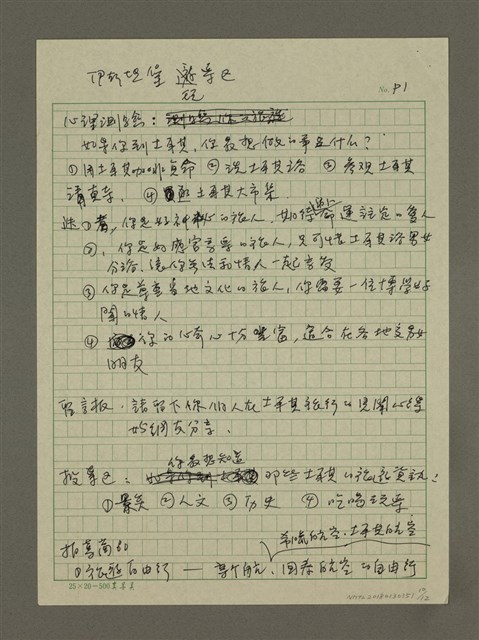 伊斯坦堡 遊學已
No. P1
心理測驗：
如果你到土耳其，你最想做的事是什么？
①用土耳其咖啡算命 ②洗土耳其浴 ③參观土耳其
清真寺. ④逛土耳其大市集
选①者，你是好神秘的旅人，如你算命運註定的愛人
②，你是好感官享受的旅人，只可惜土耳其浴男女
分浴，讓你無法和情人一起享受
③你是尊重當地文化的旅人，你需要一位博學好
聞的情人
④你的好奇心十分豐富，適合在各地交男女
朋友
留言板：請留下你個人在土耳其旅行的見聞心得
好網友分享.
你最想知道
投票已：那些土耳其的旅遊資訊：
①景矣 ②人文 ③历史 ④吃喝玩樂
希臘航空.土耳其航空
①旅遊自由行——某个航、国泰航空的自由行
25×20=500